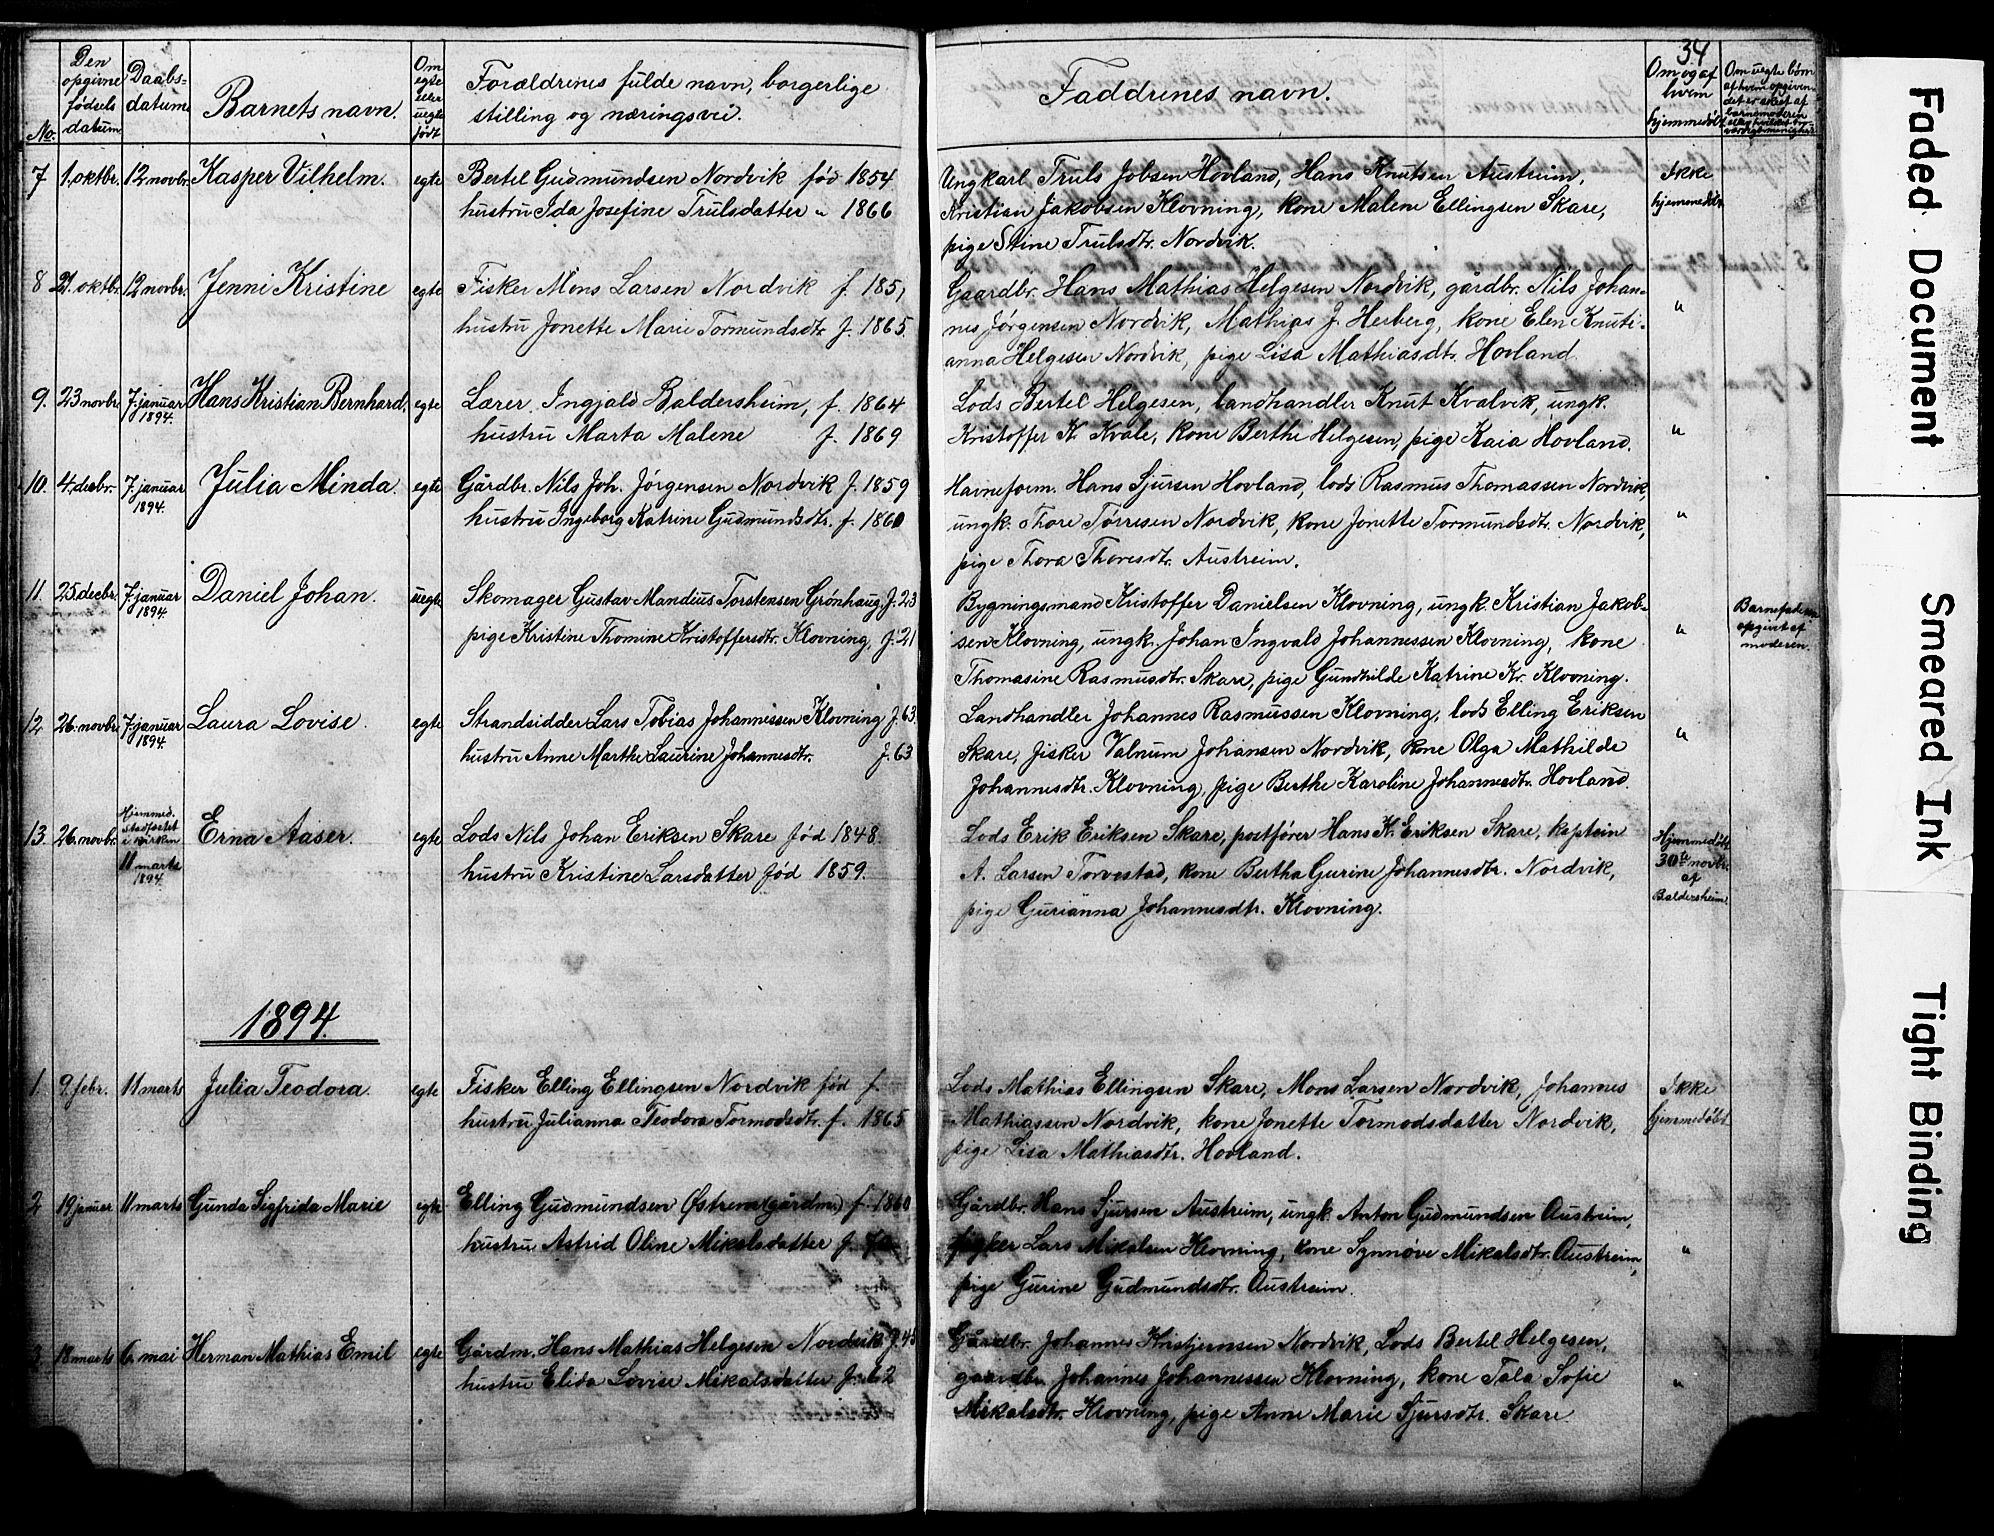 34
Den opgivne fødsels datum
Daabs- datum
No.
Barnets navn.
Om egte eller uegte født
Forældrenes fulde navn, borgerlige
stilling og næringsvei.
Faddrenes navn.
Om og af hvem hjemmedøbt
Om uegte børn
7 1. oktbr. 12 novbr. Kasper Vilhelm. egte
Bertel Gudmundsen Nordvik fød 1854
hustru Ida Josefine Trulsdatter " 1866
Ungkarl Truls Jobsen Hovland, Hans Knutsen Austreim,
Kristian Jakobsen Klovning, kone Malene Ellingsen Skare,
pige Stine Trulsdtr. Nordvik.
Ikke
hjemmedøbt
8 21. oktbr. 12 novbr. Jenni Kristine egte
Fisker Mons Larsen Nordvik f. 1851
hustru Jonette Marie Tormundsdtr f. 1865.
Gaardbr. Hans Mathias Helgesen Nordvik, gårdbr. Nils Johan-
nes Jørgensen Nordvik, Mathias J. Herberg, kone Elen Knuti-
anna Helgesen Nordvik, pige Lisa Mathiasdtr. Hovland.
"
9. 23 novbr. 7. januar 1894. Hans Kristian Bernhard. egte
Lærer Ingjald Baldersheim, f. 1864
hustru Marta Malene f. 1869
Lods Bertel Helgesen, landhandler Knut Kvalvik, ungk.
Kristoffer K. Kvale, kone Berthe Helgesen, pige Kaia Hovland.
"
10. 4. decbr. 7. januar 1894. Julia Minda. egte
Gårdbr. Nils Joh. Jørgensen Nordvik f. 1859
hustru Ingeborg Katrine Gudmundsdtr. f. 1860
Havneform. Hans Sjursen Hovland, lods Rasmus Thomassen Nordvik,
ungk. Thore Tørresen Nordvik, kone Jonette Tormundsdtr. Nordvik,
pige Thora Thoresdtr. Austreim.
"
11. 25. decbr. 7. januar 1894. Daniel Johan. uegte
Skomager Gustav Mandius Torstensen Grønhaug, f. 23
pige Kristine Thomine Kristoffersdtr. Klovning, f. 21
Bygningsmand Kristoffer Danielsen Klovning, ungk. Kristian Jakob-
sen Klovning, ungk. Johan Ingvald Johannessen Klovning, kone
Thomasine Rasmusdtr. Skare, pige Gundhilde Katrine Kr. Klovning.
"
Barnefaderen
opgivt af
moderen.
12. 26. novbr. 7. januar 1894. Laura Lovise. egte
Strandsidder Lars Tobias Johannessen Klovning f. 63.
hustru Anne Marthe Laurine Johannesdtr. f. 63
Landhandler Johannes Rasmussen Klovning, lods Elling Eriksen
Skare, fisker Valnum Johansen Nordvik, kone Olga Mathilde
Johannesdtr. Klovning, pige Berthe Karoline Johannesdtr. Hovland.
"
13. 26. novbr. Hjemmed. stadfæstet i kirken 11 marts 1894. Erna Aaser. egte
Lods Nils Johan Eriksen Skare fød 1848.
hustru Kristine Larsdatter fød 1859.
Lods Erik Eriksen Skare, postfører Hans K. Eriksen Skare, kaptein
A. Larsen Torvestad, kone Bertha Gurine Johannesdtr. Nordvik,
pige Gurianna Johannesdtr. Klovning.
Hjemmedøbt
30te novbr.
af
Baldersheim
1894.
1. 9. febr. 11 marts Julia Teodora. egte
Fisker Elling Ellingsen Nordvik fød f.
hustru Julianna Teodora Tormodsdtr. f. 1865
Lods Mathias Ellingsen Skare, Mons Larsen Nordvik, Johannes
Mathiassen Nordvik, kone Jonette Tormodsdatter Nordvik,
pige Lisa Mathiasdtr. Hovland.
Ikke
hjemmedøbt
2 19. januar 11 marts Gunda Sigfrida Marie egte
Elling Gudmundsen Østrem (gårdm.) f. 1860
hustru Astrid Oline Mikalsdatter f.
Gårdbr. Hans Sjursen Austreim, ungk. Anton Gudmundsen Austreim,
fisker Lars Mikalsen Klovning, kone Synnøve Mikalsdtr. Austreim,
pige Gurine Gudmundsdtr. Austreim.
"
3. 18 marts 6. mai Herman Mathias Emil egte
Gårdm. Hans Mathias Helgesen Nordvik f. 48
hustru Elida Lovise Mikalsdatter f. 62
Gårdbr. Johannes Kristjernssen Nordvik, Lods Bertel Helgesen,
gaardbr. Johannes Johannessen Klovning, kone Tala Sofie
Mikalsdtr. Klovning, pige Anne Marie Sjursdtr. Skare.
"
Faded Document
Smeared Ink
Tight Binding